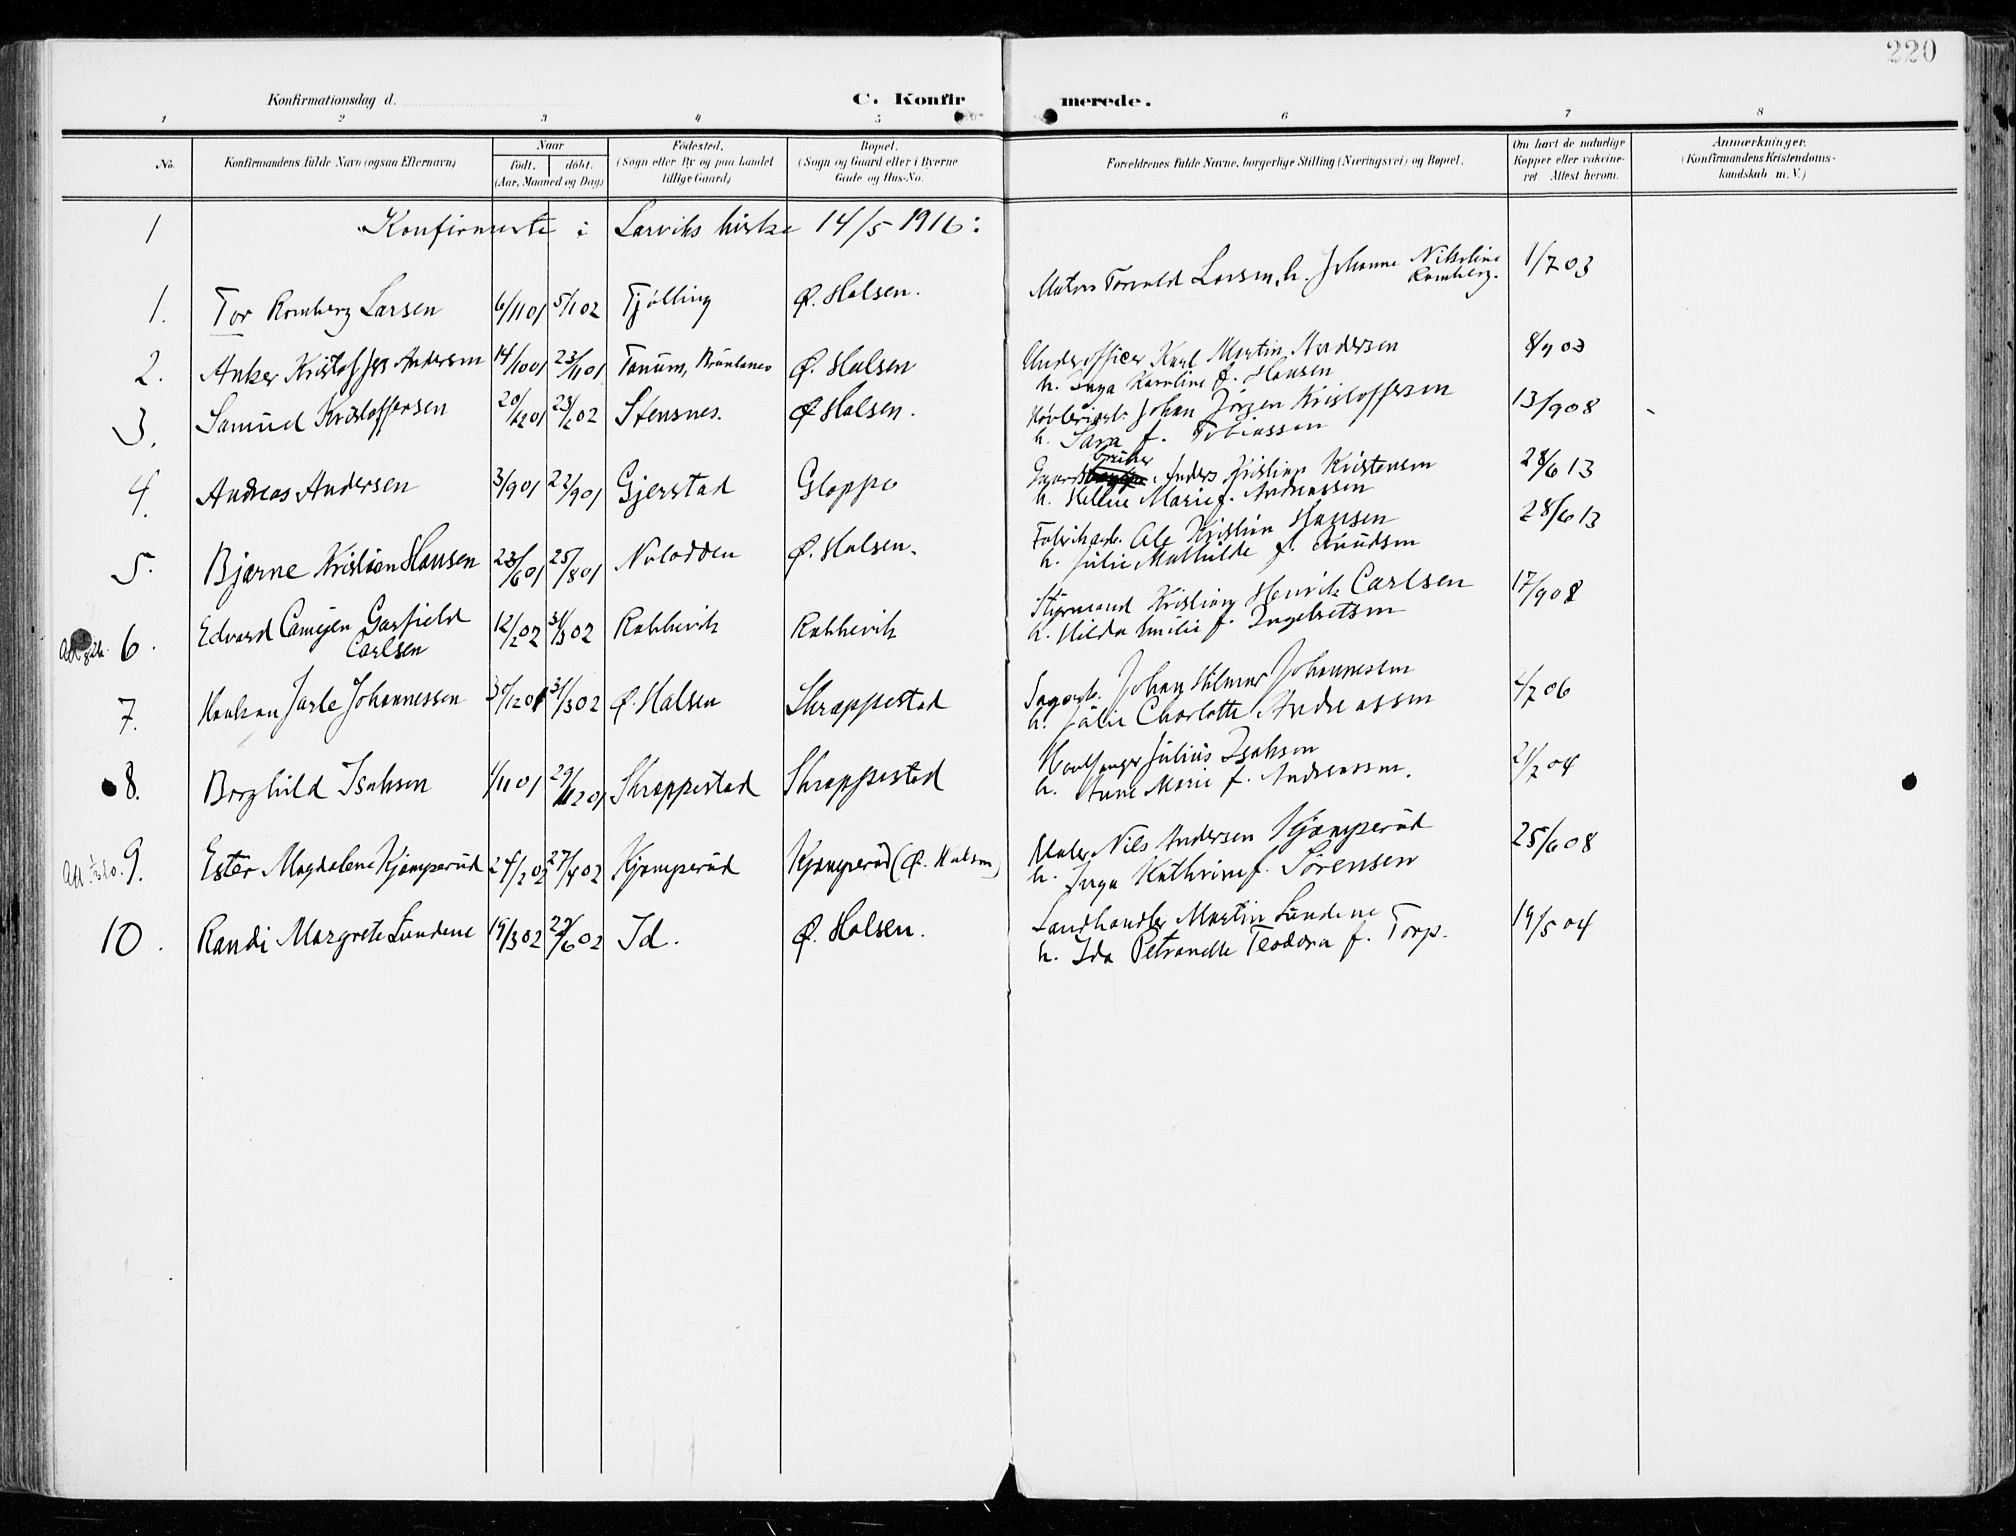 220
Konfirmationsdag d.
C. Konfirmerede.
1 2 3 4 5 6 7 8
No. Konfirmandens fulde Navn (ogsaa Efternavn) Naar født. døbt. (Aar, Maaned og Dag) Fødested. (Sogn eller By og paa Landet tillige Gaard) Bopæl. (Sogn og Gaard eller i Byerne Gade og Hus-No. Forældrenes fulde Navne, borgerlige Stilling (Næringsvei) og Bopæl. Om havt de naturlige Kopper eller vaccineret Attest herom. Anmærkninger. (Konfirmandens Kristendomskundskab m. V.)
1 Konfirmerte i Larviks kirke 14/5 1916:
1. Tor Romberg Larsen 6/11 01 5/1 02 Tjølling Ø. Halsen. Torvald Larsen, h. Johanne Nikoline Romberg. 1/7 03
2. Anker Kristoffer Andersen 14/10 01 23/11 01 Tanum, Ø. Halsen Underofficer Karl Martin Andersen
h. Inga Karoline f. Hansen 8/9 03
3. Samuel Kristoffersen 20/12 01 23/2 02 Stensnes. Ø Halsen. Johan Jörgen Kristoffersen
h. Sara f. Tobiassen 13/9 08
4. Andreas Andersen 3/9 01 22/9 01 Gjerstad Gloppe Gaardbruker Anders Kristian Kristensen
h. Helene Marie f. Andreassen 28/6 13
5. Bjarne Kristian Hansen 23/6 01 25/8 01 Notodden Ø. Halsen. Fabrikarb. Ole Kristian Hansen
h. Julie Mathilde f. Knudsen 28/6 13
6. Edvard Garfield Carlsen 12/2 02 31/3 02 Rakkevik Rakkevik Styrmand Kristian Henrik Carlsen
h. Hilda Emilie f. Ingebretsen 17/9 08
7. Haakon Jarle Johannessen 30/12 01 31/3 02 Ø. Halsen Skrappestad Sagarb. Johan Hilmar Johannessen
h. Julie Charlotte Andreassen 4/7 06
8. Borghild Isaksen 4/11 01 29/12 01 Skræppestad Skræppestad Hvalfanger Julius Isaksen
h. Anne Marie f. Andreassen. 21/7 04
9. Ester Magdalene Kjæmperud 24/2 02 27/4 02 Kjæmperud Kjæmperud (Ø. Halsen) Maler Nils Andersen Kjæmperud
h. Inga Kathrine f. Sörensen 25/6 08
10. Randi Margrete Lundene 19/3 02 29/6 02 Id. Ø. Halsen. Landhandler Martin Lundene
h. Ida Petronelle Teodora f. Torp. 19/5 04